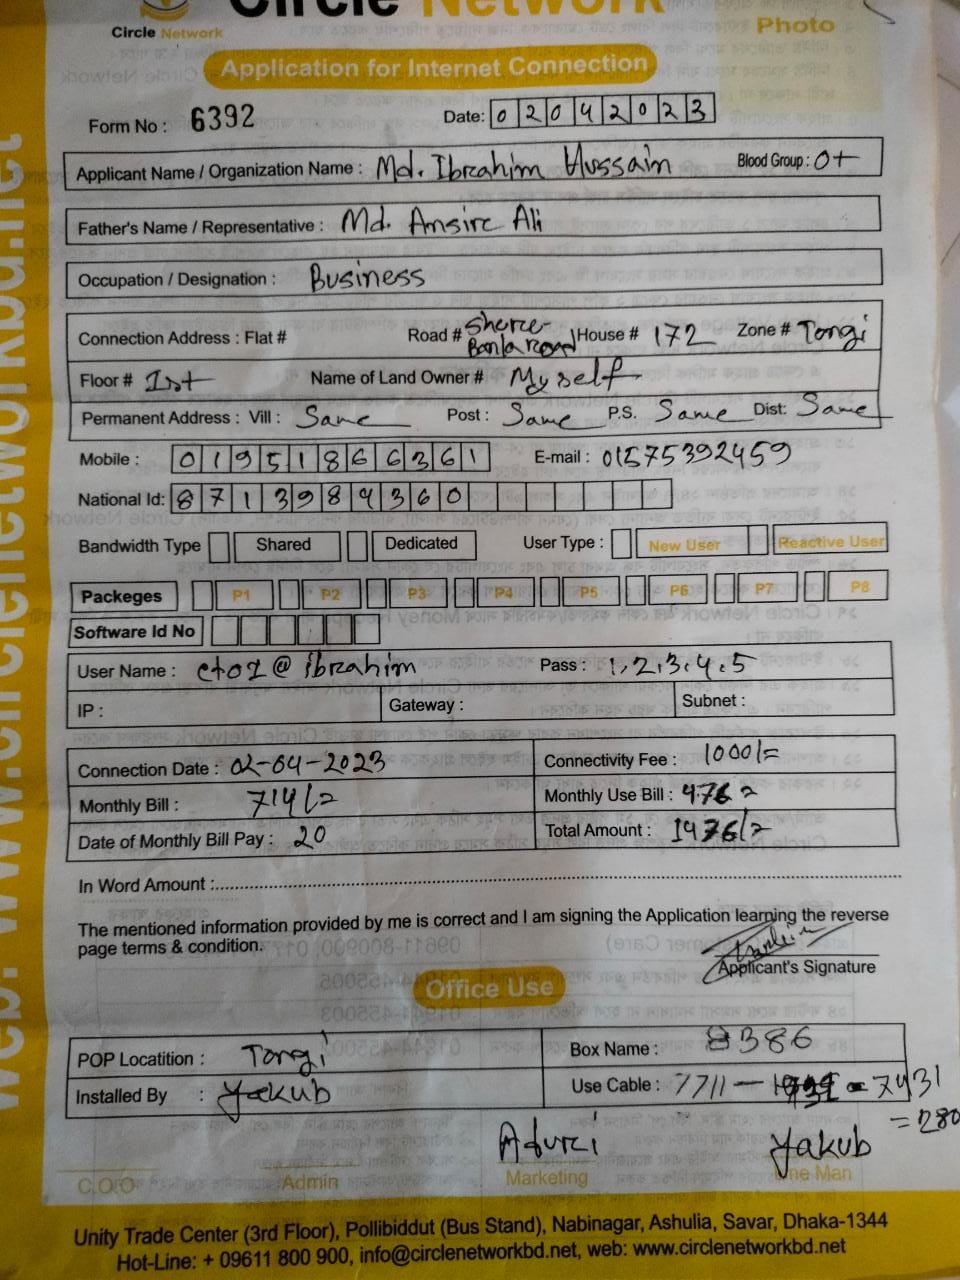 Circle Network
Circle Network
Photo
Application for Internet Connection
Form No : 6392
Date: 02042023
Applicant Name / Organization Name : Md. Ibrahim Hussain Blood Group : O+
Father's Name / Representative : Md. Ansire Ali
Occupation / Designation : Business
Connection Address : Flat # Road # Shere Banla road House # 172 Zone # Tongi
Floor # 1st Name of Land Owner # My self
Permanent Address : Vill : Same Post : Same P.S. Same Dist: Same
Mobile : 01951866361 E-mail : 01575392459
National Id: 8713984360
Bandwidth Type Shared Dedicated User Type : New User Reactive User
Packeges P1 P2 P3 P4 P5 P6 P7 P8
Software Id No
User Name : cto1@ibrahim Pass : 1,2,3.4.5
IP : Gateway : Subnet :
Connection Date : 02-04-2023 Connectivity Fee : 1000/=
Monthly Bill : 714/= Monthly Use Bill : 476 =
Date of Monthly Bill Pay : 20 Total Amount : 1476/=
In Word Amount :
The mentioned information provided by me is correct and I am signing the Application learning the reverse
page terms & condition.
Applicant's Signature
Office Use
POP Locatition : Tongi Box Name : 386
Installed By : Yakub Use Cable : 7711 - 7431
= 280
Yakub
C.O.O Admin Marketing Line Man
Unity Trade Center (3rd Floor), Pollibiddut (Bus Stand), Nabinagar, Ashulia, Savar, Dhaka-1344
Hot-Line: + 09611 800 900, info@circlenetworkbd.net, web: www.circlenetworkbd.net
web: www.circlenetworkbd.net